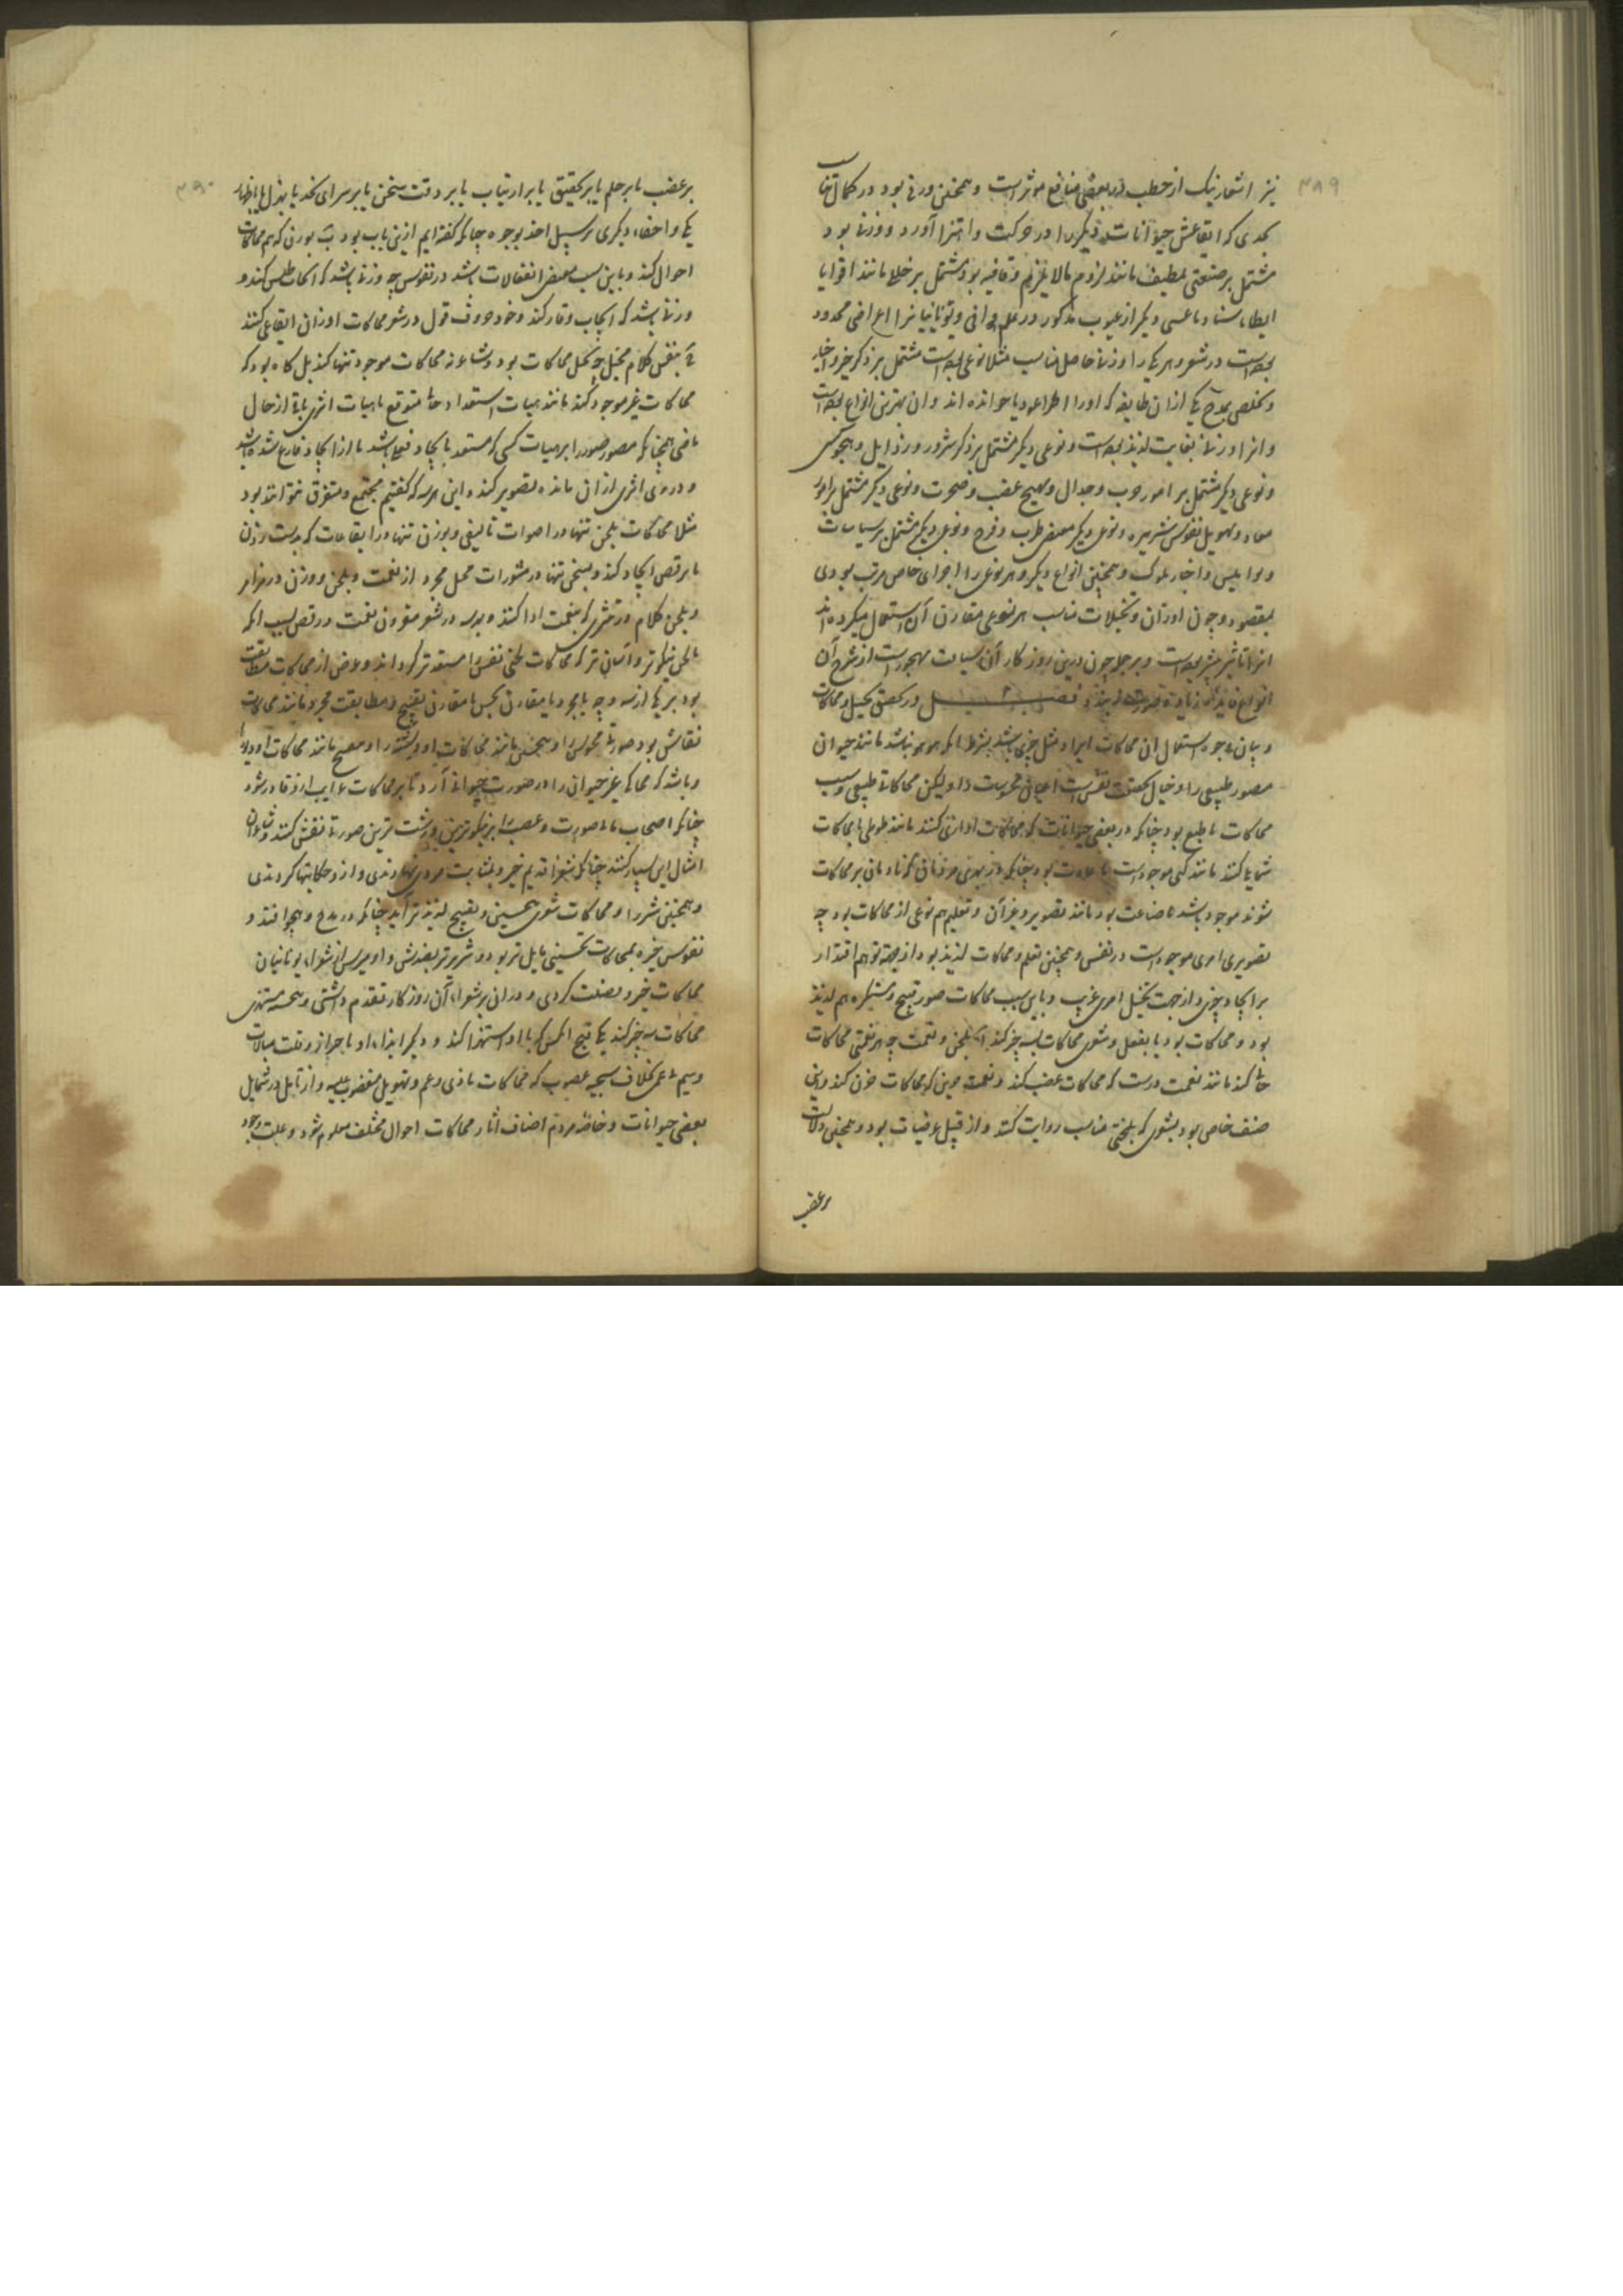 ۳۸۹
نیز اشعار نیک از خطب در بعضی منافع موثر است و همچنین وزنی بود در کمال تناسب
بحدی که ایقاعش حیوانات دیگر را در حرکت و اهتزاز آورد و وزنی بود
مشتمل بر صنعتی لطیف مانند لزوم مالایلزم و قافیه بود مشتمل بر خلل مانند اقوا یا
ایطا یا سناد یا غیر دیگر از عیوب مذکور در علم قوافی و یونانیانرا اغراضی محدود
بوده است در شعر و هر یکی را وزنی خاص مناسب مثلا نوعی بوده است مشتمل بر ذکر خیر و اخیار
و تخلص بمدح یکی از آن طایفه که او را اطراغودیا خوانده اند و آن بهترین انواع بوده است
و انرا وزنی بغایت لذیذ بوده است و نوعی دیگر مشتمل بر ذکر شرور و رذایل و هجو کسی
و نوعی دیگر مشتمل بر امور حرب و جدال و تهییج غضب و ضجرت و نوعی دیگر مشتمل بر امور
معاد و تهویل نفوس شریره و نوعی دیگر مقتضی طرب و فرح و نوعی دیگر مشتمل بر سیاسات
و نوامیس و اخبار ملوک و همچنین انواع دیگر و هر نوعی را اجزای خاص مرتب بودی
مقصود و چون اوزان و تخیلات مناسب هر نوعی مقارن آن استعمال میکرده اند
انرا تاثیر بیشتر بوده است و بر جمله چون درین روزگار آن سیاقت مهجور است از شرح آن
انواع فایده زیادت صورت نبندد فصل ۲ در تحقیق تخییل و محاکات
و بیان وجوه استعمال ان محاکات ایراد مثل چیزی باشد بشرط آنکه هوهو نباشد مانند حیوان
مصور طبیعی را و خیال بحقیقت نفس است اعیان محسوسات را و لیکن محاکاتی طبیعی و سبب
محاکات یا طبع بود چنانکه در بعضی حیوانات که محاکات اوازی کنند مانند طوطی یا محاکات
شمایلی کنند مانند کپی موجود است یا عادت بود چنانکه در بعضی مردمان که بادمان بر محاکات
شوند موجود باشد یا صناعت بود مانند تصویر و غیر آن و تعلیم هم نوعی از محاکات بود چه
تصویری امری موجود است در نفس و همچنین تعلم و محاکات لذیذ بود از جهة توهم اقتدار
بر ایجاد چیزی و از جهت تخییل امری غریب و باین سبب محاکات صور قبیح و مستکره هم لذیذ
بود و محاکات بود یا بفعل و شعر محاکات بسه چیز کند ا بلحن و نغمت چه هر نغمتی محاکات
حالی کند مانند نغمت درشت که محاکات غضب کند و نغمت حزین که محاکات حزن کند و این
صنف خاص بود بشعری که بلحنی مناسب روایت کنند و از قبیل عرضیات بود و همچنین دلالت
بر غضب
۳۹۰
بر غضب یا بر حلم یا بر تحقیق یا بر ارتیاب یا بر دقت سخن یا بر سرای خد یا بذل یا باظهار
یکی و اخفاء دیگری بر سبیل اخذ بوجوه چنانکه گفته ایم ازین باب بود ب بوزن که هم محاکات
احوال کند و باین سبب مقتضی انفعالات باشد در نفوس چه وزنی باشد که ایجاب طیش کند و
وزنی باشد که ایجاب وقار کند و خود حروف قول در شعر محاکات اوزان ایقاعی کنند
ج بنفس کلام مخیل چه تخیل محاکات بود و شاعر نه محاکات موجود تنها کند بل گاه بود که
محاکات غیر موجود کند مانند هیات استعداد حالی متوقع یا هیات اثری باقی از حال
ماضی همچنانکه مصور صورت را بر هیات کسی که مستعد ایجاد فعلی باشد یا از ایجاد فارغ شده باشد
و در وی اثری از آن مانده تصویر کند و این هر سه که گفتیم مجتمع و متفرق تواند بود
مثلا محاکات بلحن تنها در اصوات تالیفی و بوزن تنها در ایقاعات که بدست زدن
یا برقص ایجاد کند و بسخن تنها در منثورات مخیل مجرد از نغمت و بلحن و وزن در مزامر
و بلحن و کلام در نثری که بنغمت ادا کنند و بهر سه در شعر مقرون بنغمت و رقص بسبب آنکه
با لحن نیکوتر و آسان تر که محاکات لحنی نفس را مستعدتر گرداند و غرض از محاکات مطابقت
بود بر یکی از سه وجه یا مجرد یا مقارن تحسین یا مقارن تقبیح و مطابقت مجرد مانند محاکات
نقاش بود صورتی محسوس را و تحسین مانند محاکات او فرشته را و تقبیح مانند محاکات او دیو را
و باشد که محاکی غیر حیوانی را در صورت حیوانی آرد تا بر محاکات غرایب او قادر شود
چنانکه اصحاب مانی صورت رحمت و غضب را بر نیکوترین و زشت ترین صورتی نقش کنند و شاعران
امثال این بسیار کنند چنانکه شعراء قدیم خیر و شر بشابت مردی نهادندی و از و حکایتها کردندی
و همچنین شر را و محاکات شعری تحسین و تقبیح لذیذتر آید چنانکه در مدح و هجو افتد و
نفوس خیره بمحاکات تحسینی مایل تر بود و شریر تر بضدش و اومیرس از شعراء یونانیان
محاکات خیر و فضلت کردی و در آن بر شعراء آن روزگار تقدم داشتی و همیشه مستهزی
محاکات سه چیز کند یکی قبح آنکس که با او استهزا کند و دیگر ایذاء او یا جزاز و قلت مبالات
وسیم غمی بخلاف سجیه غضوب که محاکات تاذی و غم و تهویل مغضوب علیه و از تامل در شمایل
بعضی حیوانات و خاصة مردم اصناف آثار محاکات احوال مختلف معلوم شود و علت وجود